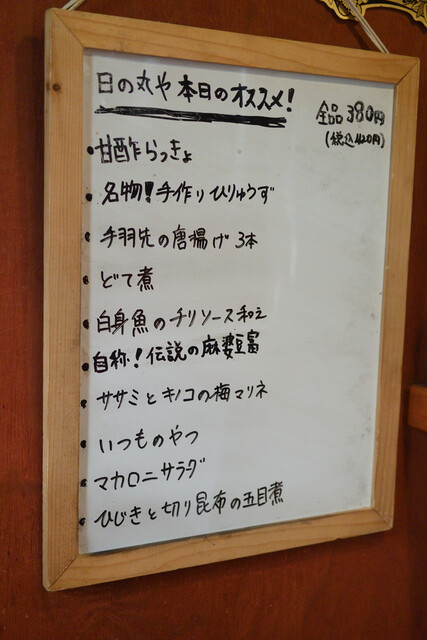 日の丸や本日のオススメ!
全品380円
(税込420円)
・甘酢らっきょ
・名物!手作りひりゅうず
・手羽先の唐揚げ 3本
・どて煮
・白身魚のチリソース和え
・自称!伝説の麻婆豆富
・ササミとキノコの梅マリネ
・いつものやつ
・マカロニサラダ
・ひじきと切り昆布の五目煮